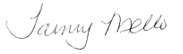 Tammy Mello